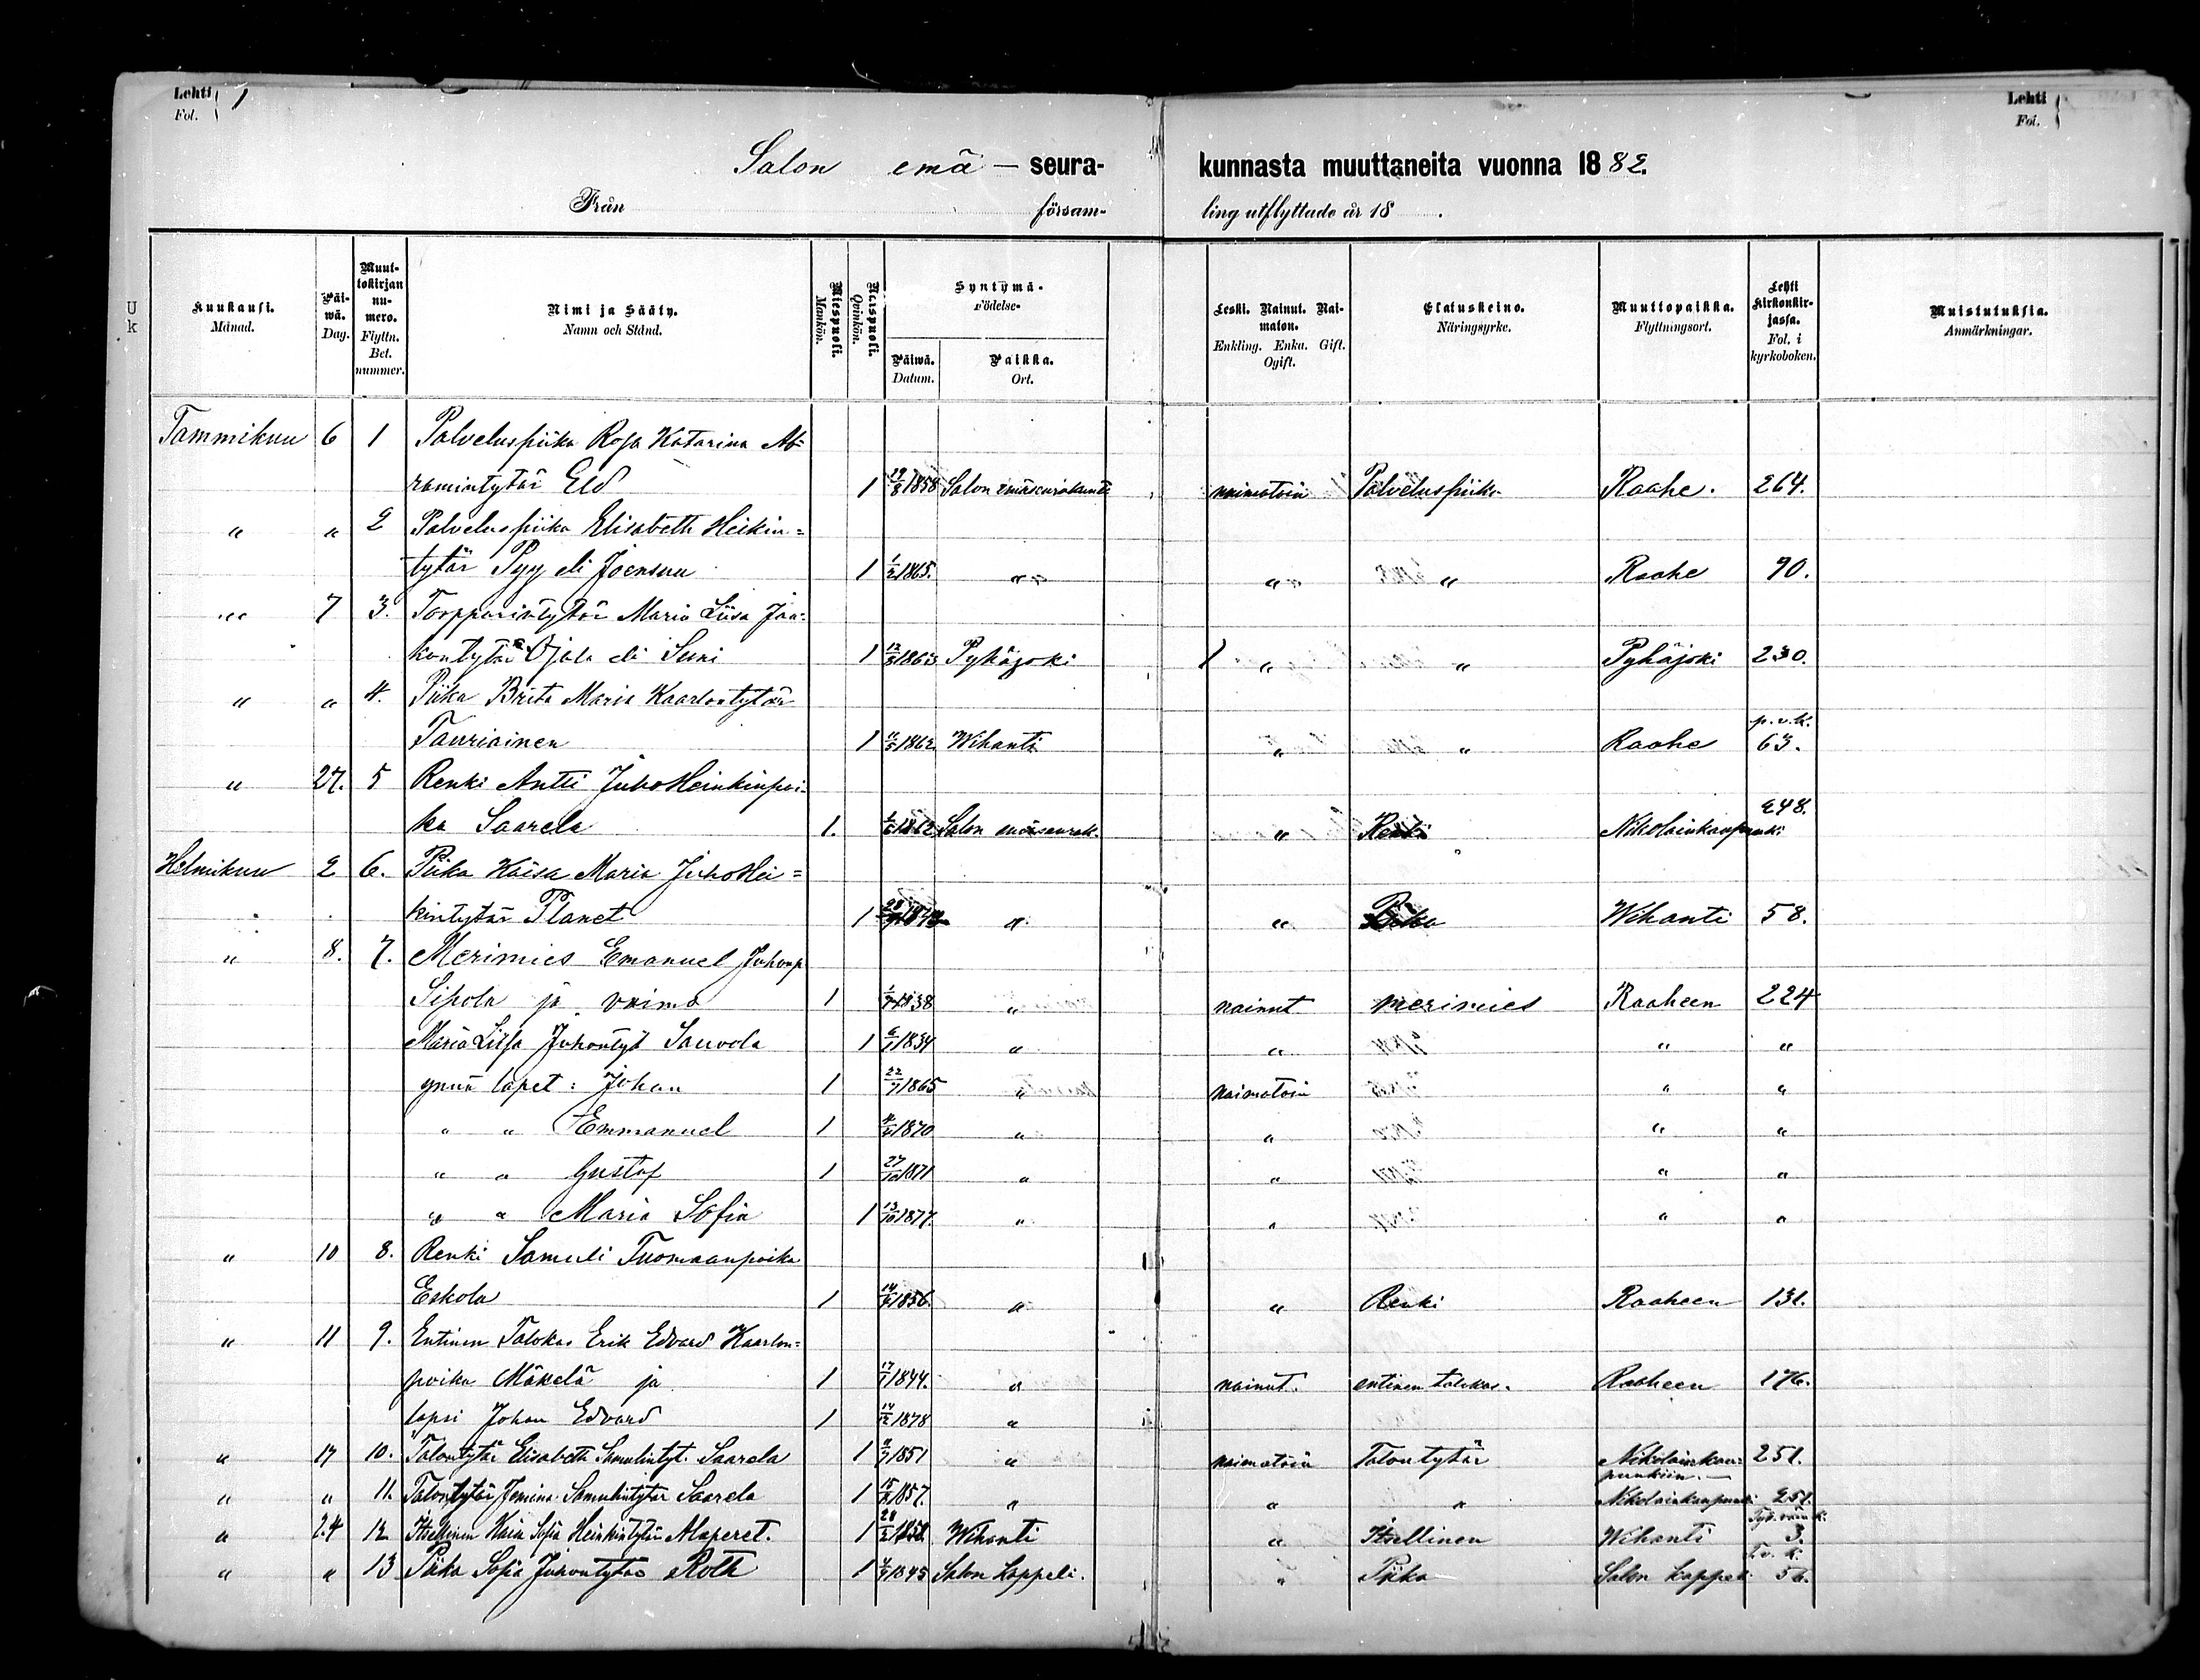 Lehti Fol. 1 Lehti Fol.
Salon emä - seura- kunnasta muuttaneita vuonna 1882.
Från försam- ling utflyttade år 18 .
Kuukausi. Månad. Päi-wä. Dag. Muut-tokirjan nu-mero. Flyttn. Bet. nummer. Nimi ja Sääty. Namn och Stånd. Miespuoli. Mankön. Neispuoli. Qvinkön. Syntymä- Födelse- Päiwä. Datum. Paikka. Ort. Leski. Nainut. Nai-maton. Enkling. Enka. Gift. Ogift. Elatuskeino. Näringsyrke. Muuttopaikka. Flyttningsort. Lehti kirkonkir-jassa. Fol. i kyrkoboken. Muistutuksia. Anmärkningar.
U k
Tammikuu 6 1 Palveluspiika Rosa Katarina Ab-
ramintytär Eld 1 19/8 1858 Salon emäseurakunta naimatoin Palveluspiika Raahe. 264.
" " 2 Palveluspiika Elisabeth Heikin=
tytär Pyy eli Joensuu 1 1/2 1865. " " " Raahe 90.
" 7 3. Torpparintytär Maria Liisa Jaa-
kontytär Ojala eli Suni 1 12/8 1863 Pyhäjoki " " Pyhäjoki 230.
" " 4. Piika Brita Maria Kaarlontytär
p.v.k.
Tauriainen 1 1862 Wihanti " " Raahe 63.
" 27. 5 Renki Antti Juho Heinkinpoi-
248.
ka Saarela 1. 1862 Salon emäseurak. " Renki Nikolainkaupunki
Helmikuu 2 6. Piika Kaisa Maria Juho Hei=
kintytär Planet 1 " " Piika Wihanti 58.
" 8. 7. Merimies Emanuel Juhonp
Sipola ja vaimo 1 1838 " nainut merimies Raaheen 224
Maria Liisa Juhontyt Sauvola 1 6/1 1834 " " " "
ynnä lapet: Johan 1 22/7 1865 " naimatoin " "
" " Emmanuel 1 1870 " " " "
" " Gustaf 1 27/10 1871 " " " "
" " Maria Sofia 1 13/10 1877. " " " "
" 10 8. Renki Samuli Tuomaanpoika
Eskola 1 1856. " " Renki Raaheen 131.
" 11 9. Entinen Talokas Erik Edvard Kaarlon=
poika Mäkelä ja 1 17/7 1844. " nainut. entinen talokas. Raaheen 176.
lapsi Johan Edvard 1 14/12 1878 "
" 17 10. Talontytär Elisabeth Samulintyt. Saarela 1 1851 " naimatoin Talontytär Nikolainkau- 251.
punkiin.
" " 11. Talontytär Jemina Samulintytär Saarela 1 1857. " " " Nikolainkaupunki 251.
" 24 12 Itsellinen Kaisa Sofia Heinkintytär Alaperet. 1 Wihanti " Itsellinen Wihanti 3.
" " 13 Piika Sofia Juhontytär Roth 1 1845 Salon Kappeli. " Piika Salon kappeli 56.